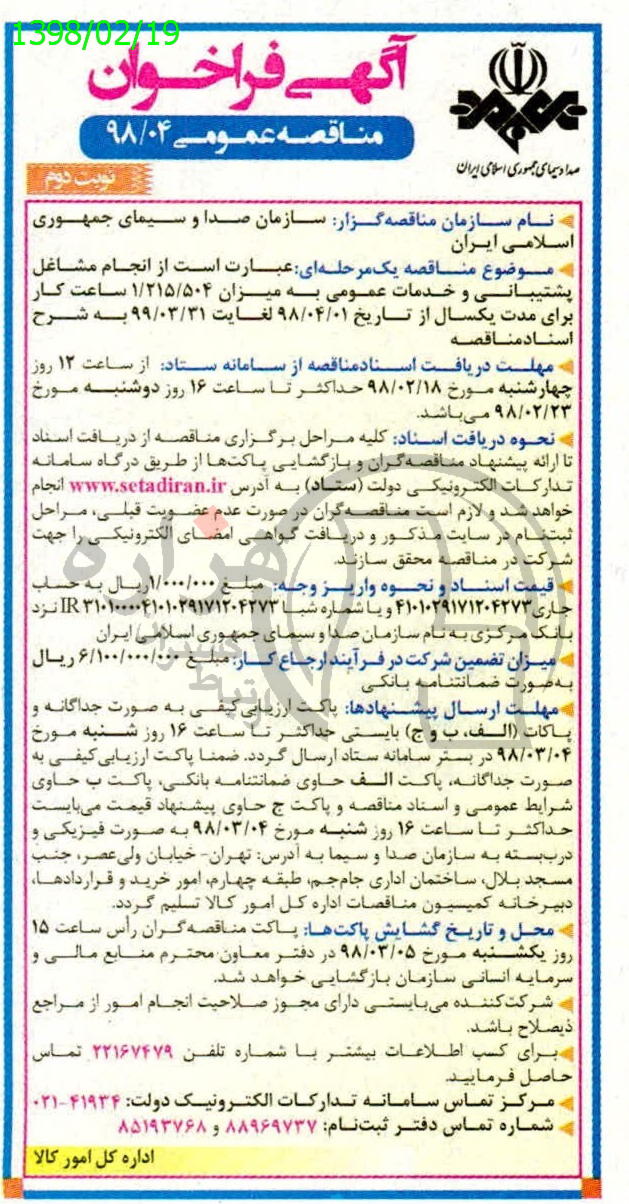 1398/02/19
آگهی فراخوان
مناقصه عمومی ۹۸/۰۴
صدا و سیمای جمهوری اسلامی ایران
نوبت دوم
نـام سـازمان مناقصه‌گـزار: سـازمان صـدا و سـیمای جمهـوری
اسـلامی ایـران
مـوضوع منـاقصه یک‌مرحلـه‌ای: عبـارت اسـت از انجـام مشـاغل
پشتیبانـی و خـدمات عمومی به میـزان ۱/۲۱۵/۵۰۴ سـاعت کـار
برای مدت یکسـال از تـاریخ ۹۸/۰۴/۰۱ لغـایت ۹۹/۰۳/۳۱ به شـرح
اسنـاد مناقصـه
مهلـت دریافـت اسـناد مناقصه از سـامانه ستـاد: از ساعت ۱۲ روز
چهارشنبه مـورخ ۹۸/۰۲/۱۸ حداکثر تـا سـاعت ۱۶ روز دوشنبـه مـورخ
۹۸/۰۲/۲۳ می‌باشد.
نحـوه دریافت اسـناد: کلیه مـراحل برگـزاری مناقصـه از دریـافت اسناد
تا ارائه پیشنهاد مناقصه‌گران و بازگشایی پاکت‌ها از طریق درگاه سامانـه
تدارکـات الکترونیکـی دولت (ستـاد) بـه آدرس www.setadiran.ir انجام
خواهد شـد و لازم اسـت مناقصـه‌گران در صورت عدم عضـویت قبلـی، مـراحل
ثبت‌نام در سایت مـذکـور و دریـافت گـواهـی امضـای الکترونیکـی را جهت
شـرکت در مناقصـه محقق سازند.
قیمت اسنـاد و نحـوه واریـز وجـه: مبلـغ ۱/۰۰۰/۰۰۰ریـال به حسـاب
جاری ۴۱۰۱۰۲۹۱۷۱۲۰۴۲۷۳ و یـا شماره شبـا IR ۳۱۰۱۰۰۰۰۴۱۰۱۰۲۹۱۷۱۲۰۴۲۷۳ نـزد
بـانک مرکـزی به نـام سازمان صدا و سیمای جمهوری اسلامی ایران
میـزان تضمین شرکت در فـرآیند ارجـاع کـار: مبلـغ ۶/۱۰۰/۰۰۰/۰۰۰ ریـال
به‌صورت ضمـانتنامـه بانکـی
مهلـت ارسـال پیشـنهادها: پاکـت ارزیـابی کیفـی به صورت جداگانـه و
پـاکات (الـف، ب و ج) بایستـی حداکثـر تـا سـاعت ۱۶ روز شـنبه مورخ
۹۸/۰۳/۰۴ در بستر سامانه ستاد ارسال گـردد. ضمنا پاکت ارزیابی کیفـی به
صورت جداگانـه، پاکـت الـف حـاوی ضمانتنامه بانکـی، پاکـت ب حـاوی
شرایط عمومی و اسناد مناقصه و پاکت ج حاوی پیشنهاد قیمت می‌بایست
حداکثـر تـا سـاعت ۱۶ روز شنبـه مـورخ ۹۸/۰۳/۰۴ به صـورت فیـزیکی و
درب‌بسته به سازمان صدا و سیما به آدرس: تهران- خیابان ولی‌عصر، جنب
مسجد بـلال، ساختمان اداری جام‌جم، طبقه چهارم، امور خرید و قـراردادهـا،
دبیـرخـانـه کمیسیون مناقصات اداره کـل امـور کـالا تسلیم گـردد.
محـل و تـاریـخ گشـایش پاکت‌هـا: پـاکت مناقصه‌گـران رأس سـاعت ۱۵
روز یکشنبـه مـورخ ۹۸/۰۳/۰۵ در دفتـر معـاون محتـرم منـابع مالـی و
سـرمایه انسانی سازمان بازگشایی خـواهـد شـد.
شـرکت‌کننـده می‌بایستـی دارای مجـوز صـلاحیت انجـام امـور از مـراجع
ذیصلاح باشـد.
بـرای کسب اطـلاعـات بیشتـر بـا شمـاره تلفـن ۲۲۱۶۷۴۷۹ تمـاس
حاصل فرمایید.
مـرکـز تماس سـامانـه تـدارکـات الکتـرونیـک دولت: ۰۲۱-۴۱۹۳۴
شمـاره تماس دفتـر ثبت‌نـام: ۸۸۹۶۹۷۳۷ و ۸۵۱۹۳۷۶۸
اداره کل امور کالا